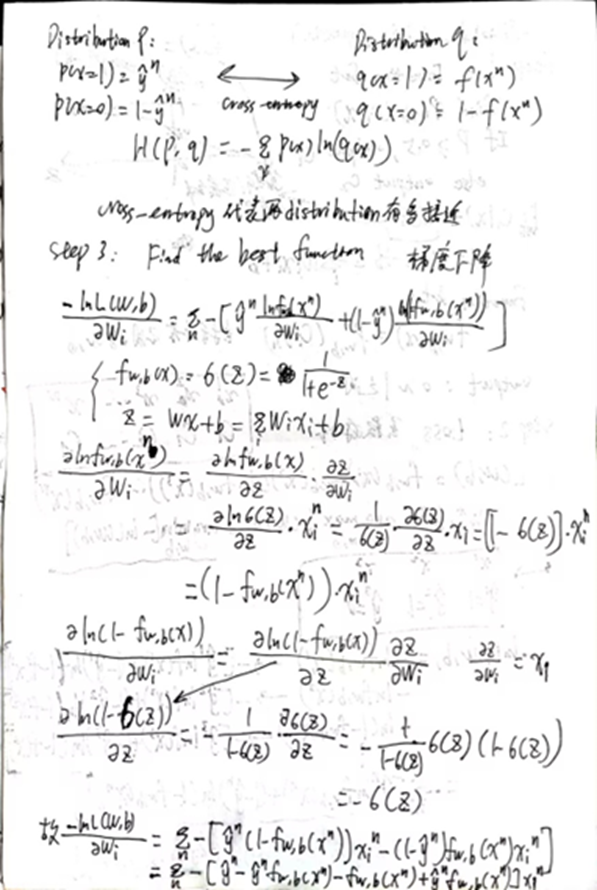 Distribution p: Distribution q:
p(x=1) = ŷⁿ ⟷ q(x=1) = f(xⁿ)
p(x=0) = 1-ŷⁿ cross-entropy q(x=0) = 1-f(xⁿ)
H(p,q) = -Σₓ p(x)ln(q(x))
cross-entropy 代表两distribution有多接近
Step 3: Find the best function 梯度下降
-lnL(w,b)/∂wᵢ = Σₙ -[ŷⁿ lnf_{w,b}(xⁿ)/∂wᵢ + (1-ŷⁿ) ln(1-f_{w,b}(xⁿ))/∂wᵢ]
{ f_{w,b}(x) = σ(z) = 1/(1+e^{-z})
z = wx+b = Σᵢ wᵢxᵢ+b
∂lnf_{w,b}(xⁿ)/∂wᵢ = ∂lnf_{w,b}(x)/∂z · ∂z/∂wᵢ
∂lnσ(z)/∂z · xᵢⁿ = 1/σ(z) · ∂σ(z)/∂z · xᵢ = [1-σ(z)]·xᵢⁿ
= (1-f_{w,b}(xⁿ))·xᵢⁿ
∂ln(1-f_{w,b}(x))/∂wᵢ = ∂ln(1-f_{w,b}(x))/∂z ∂z/∂wᵢ ∂z/∂wᵢ = xᵢ
∂ln(1-σ(z))/∂z = -1/(1-σ(z)) · ∂σ(z)/∂z = -1/(1-σ(z)) σ(z)(1-σ(z))
= -σ(z)
故 -lnL(w,b)/∂wᵢ = Σₙ -[ŷⁿ(1-f_{w,b}(xⁿ))xᵢⁿ - (1-ŷⁿ)f_{w,b}(xⁿ)xᵢⁿ]
= Σₙ -[ŷⁿ-ŷⁿf_{w,b}(xⁿ)-f_{w,b}(xⁿ)+ŷⁿf_{w,b}(xⁿ)]xᵢⁿ